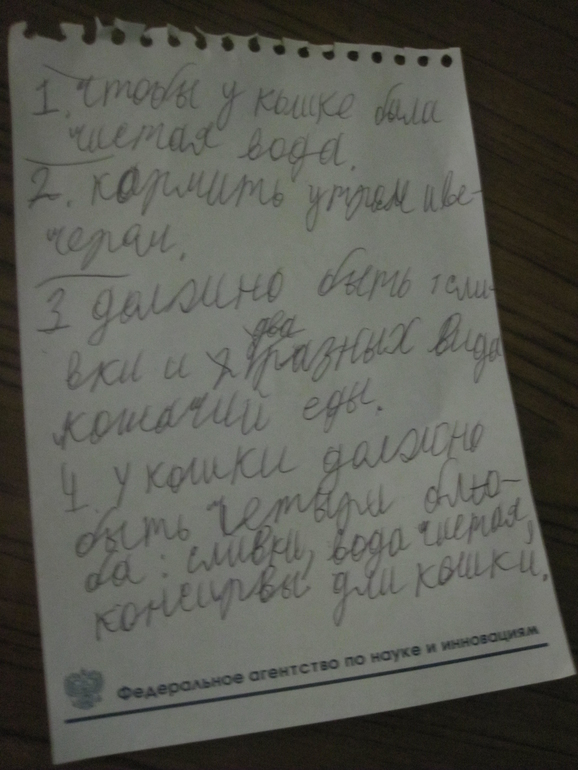 1. чтобы у кошке была
чистая вода.
2. кормить утром иве-
чером.
3 должно быть : сли-
вки и два разных вида
кошачий еды.
4. у кошки должно
быть четыри блю-
ба: сливки, вода чистая,
консирвы для кошки.
Федеральное агентство по науке и инновациям